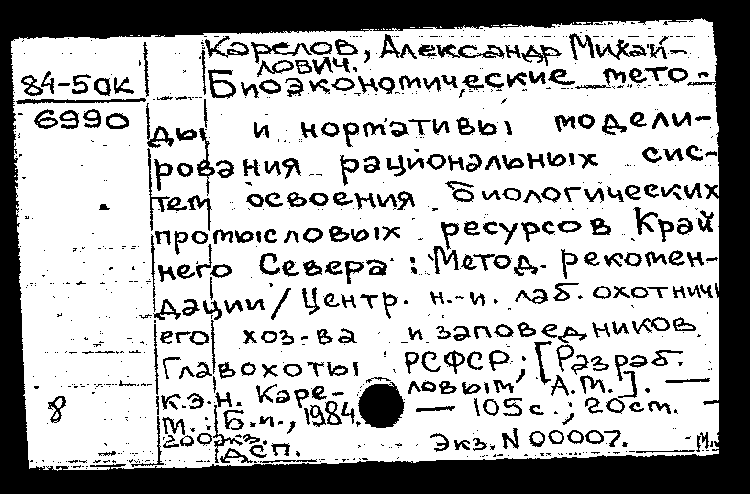 Карелов, Александр Михай-
лович.
84-5ок
Биоэкономические мето-
6990
ды и нормативы модели-
рования рациональных сис-
тем освоения биологических
промысловых ресурсов Край
него Севера : Метод. рекомен-
дации / Центр. н.-и. лаб. охотничь
его хоз-ва и заповедников
Главохоты РСФСР; [Разраб.
к.э.н. Каре- ловым А.М.]. —
8
М. : Б.и., 1984. — 105с.; 20см. —
200экз.
ДСП. Экз. N 00007.